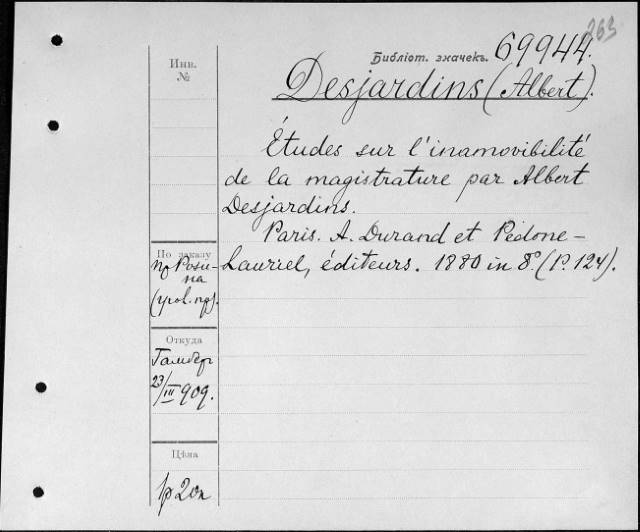 263
Библіот. значекъ. 69944.
Desjardins (Albert).
Инв.
№
Études sur l'inamovibilité
de la magistrature par Albert
Desjardins.
Paris. A. Durand et Pedone-
Lauriel, éditeurs. 1880 in 8º. (P. 124).
По заказу
пр Розина
(угол. пр).
Откуда
23/III 909.
Цѣна
1р 20к